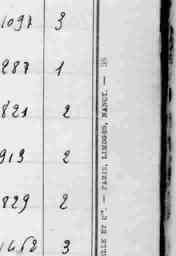 1097 3
287 1
821 2
913 2
829 2
3
LLE ET Cie. — PARIS, LIMOGES, NANCY. —